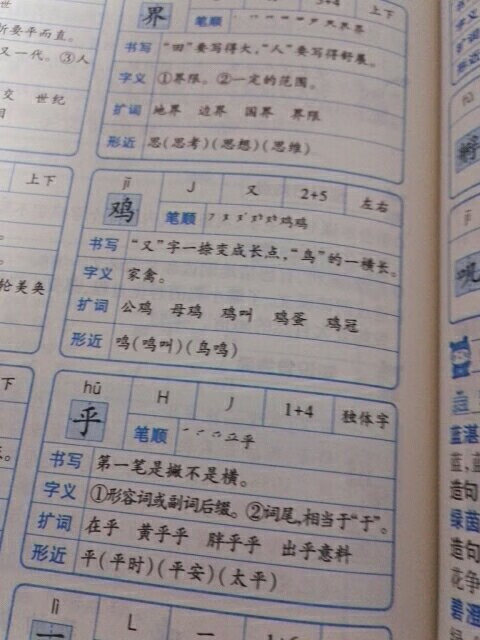 界
5+4
上下
笔顺
书写 "田"要写得大,"人"要写得舒展。
字义 ①界限。②一定的范围。
扩词 地界 边界 国界 界限
形近 思(思考)(思想)(思维)
jī
鸡
J
又
2+5
左右
笔顺
书写 "又"字一捺变成长点,"鸟"的一横长。
字义 家禽。
扩词 公鸡 母鸡 鸡叫 鸡蛋 鸡冠
形近 鸣(鸣叫)(鸟鸣)
hū
乎
H
J
1+4
独体字
笔顺
书写 第一笔是撇不是横。
字义 ①形容词或副词后缀。②词尾,相当于"于"。
扩词 在乎 黄乎乎 胖乎乎 出乎意料
形近 平(平时)(平安)(太平)
lì
L
一
所要平而直。
又一代。③人
交 世纪
上下
轮美奂
下
字义
扩词
形近
蓝湛
蓝,蓝
造句
绿茵
造句
花争
碧澄